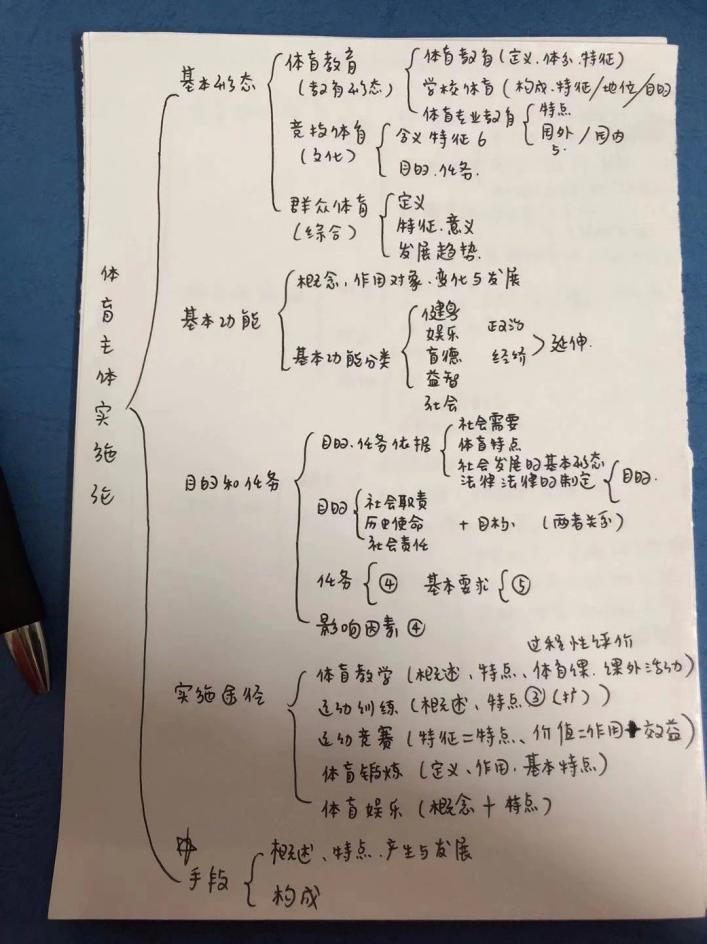 体育主体实施论
基本形态
体育教育
(教育形态)
体育教育(定义.体系.特征)
学校体育(构成.特征/地位/目的
体育专业教育
特点
国外/国内
5.
竞技体育
(文化)
含义特征6
目的.任务.
群众体育
(综合)
定义
特征.意义
发展趋势.
基本功能
概念,作用对象.变化与发展
基本功能分类
健身
娱乐
育德
益智
社会
政治
经济
>延伸.
目的和任务
目的.任务依据
社会需要
体育特点
社会发展的基本形态
法律法律的制定
目的.
目的
社会职责
历史使命
社会责任
+目标 (两者关系)
任务 ④ 基本要求 ⑤
影响因素④
实施途径
过程性评价
体育教学(概述、特点、体育课.课外活动)
运动训练(概述、特点③(扩))
运动竞赛(特征=特点、价值=作用+效益)
体育锻炼(定义、作用.基本特点)
体育娱乐(概念+特点)
手段
概述、特点.产生与发展
构成